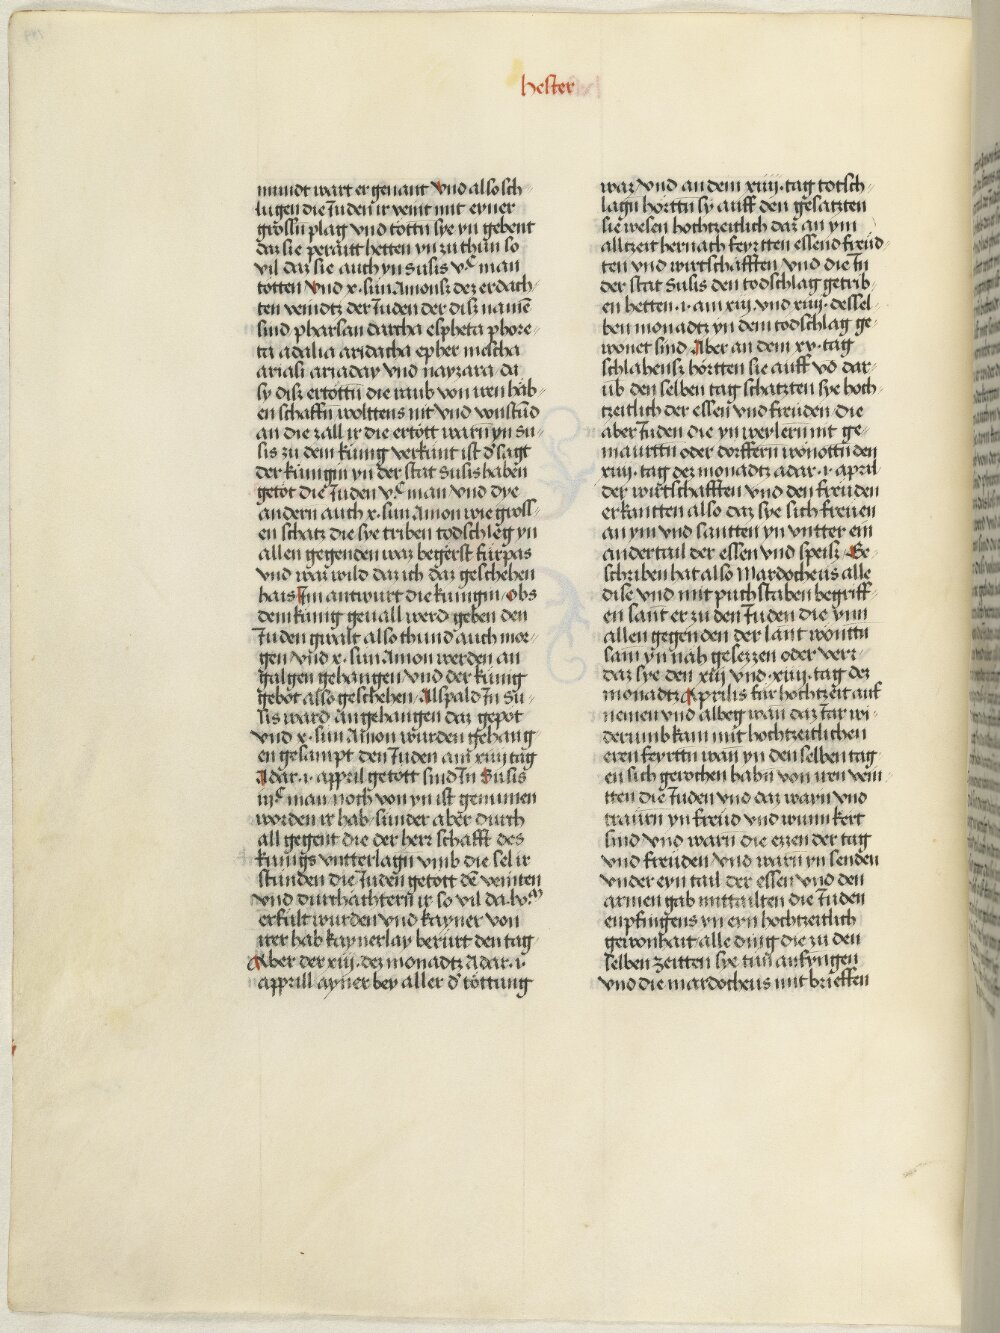 hester
mundt wart er genant vnd also sch
lugen die Juden ir veint mit eyner
grossn plag vnd tottn sye yn gebent
daz sie peraitt hetten yn zu thun so
vil daz sie auch yn Susis vᶜ man
totten vnd x. sun Amons dez erdach
ten veindtz der Juden der disz namē
sind pharsan dartha espheta phore
ta adalia aridatha epher mescha
ariasi ariaday vnd nayzara da
sy disz ertottn die raub von iren hab
en schaffn wolttens nit vnd vonstūd
an die zall ir die ertott warn yn su
sis zu dem kung verkunt ist d' sagt
der kungin yn der stat Susis haben
getot die Juden vᶜ man vnd dye
andern auch x. sun Amon wie gross
en schatz die sye triben todschleg yn
allen gegenden waz begerst furpas
vnd waz wild daz ich daz geschehen
hais Im antwurt die kungin obs
dem kung geuall werd geben den
Juden gwalt also thun d' auch mor
gen vnd x. sun Amon werden an
galgen gehangen vnd der kung
gebot also geschehen Allspald In Su
sis ward angehangen daz gepot
vnd x. sun Amon wurden gehang
en gesampt den Juden am xiiii tag
Adar .i. appril getott sind In Susis
iiiᶜ man noch von yn ist genumen
worden ir hab sunder aber durch
all gegent die der herr schafft des
kungs vntterlagn vmb die sel ir
stunden die Juden getott dē veinten
vnd durchächtern ir so vil da. lv.ᵐ
erfult wurden vnd kayner von
irer hab kaynerlay berurt den tag
Aber der xiii. dez monadtz Adar .i.
apprill ayner bey aller d' tottung
waz vnd an dem xiiii. tag totsch
lagn hortt si auff den gesatzten
sie wesen hochtzeitlich daz an ym
alltzeit hernach feyrtten essend freud
ten vnd wirtschafften vnd die In
der stat Susis den todschlag getrib
en hetten .i. am xiii. vnd xiiii. dessel
ben monadtz yn dem todschlag ge
wonet sind Aber an dem xv. tag
schlahensz hortten sie auff vō dar
ub den selben tag schatzten sye hoch
tzeitlich der essen vnd freuden die
aber Juden die yn weylern nit ge
maurttn oder dorffern wonottn den
xiiii. tag dez monadtz adar .i. april
der wirtschafften vnd den freuden
erkantten also daz sye sich freuen
an ym vnd santten yn vntter ein
ander tail der essen vnd speisz Ge
schriben hat also Mardocheus alle
dise vnd mit puchstaben begriff
en sant er zu den Juden die ynn
allen gegenden der lant wontt
sam yn nah gesezzen oder verr
daz sye den xiii vnd xiiii. tag dez
monadtz Aprilis fur hochtzeit auf
nemen vnd albeg wan daz Jar wi
derumb kam mit hochtzeitlichen
eren feyrttn wan yn den selben tag
en sich gerochen habn von iren vein
tten die Juden vnd daz warn vnd
traurn yn freud vnd wunn kert
sind vnd warn die ezzen der tag
vnd freuden vnd warn yn senden
vnder eyn tail der essen vnd den
armen gab mittailten die Juden
enpfingens yn eyn hochtzeitlich
gewonhait alle ding die zu den
selben zeitten sye tun anfyngen
vnd die mardocheus mit brieffen